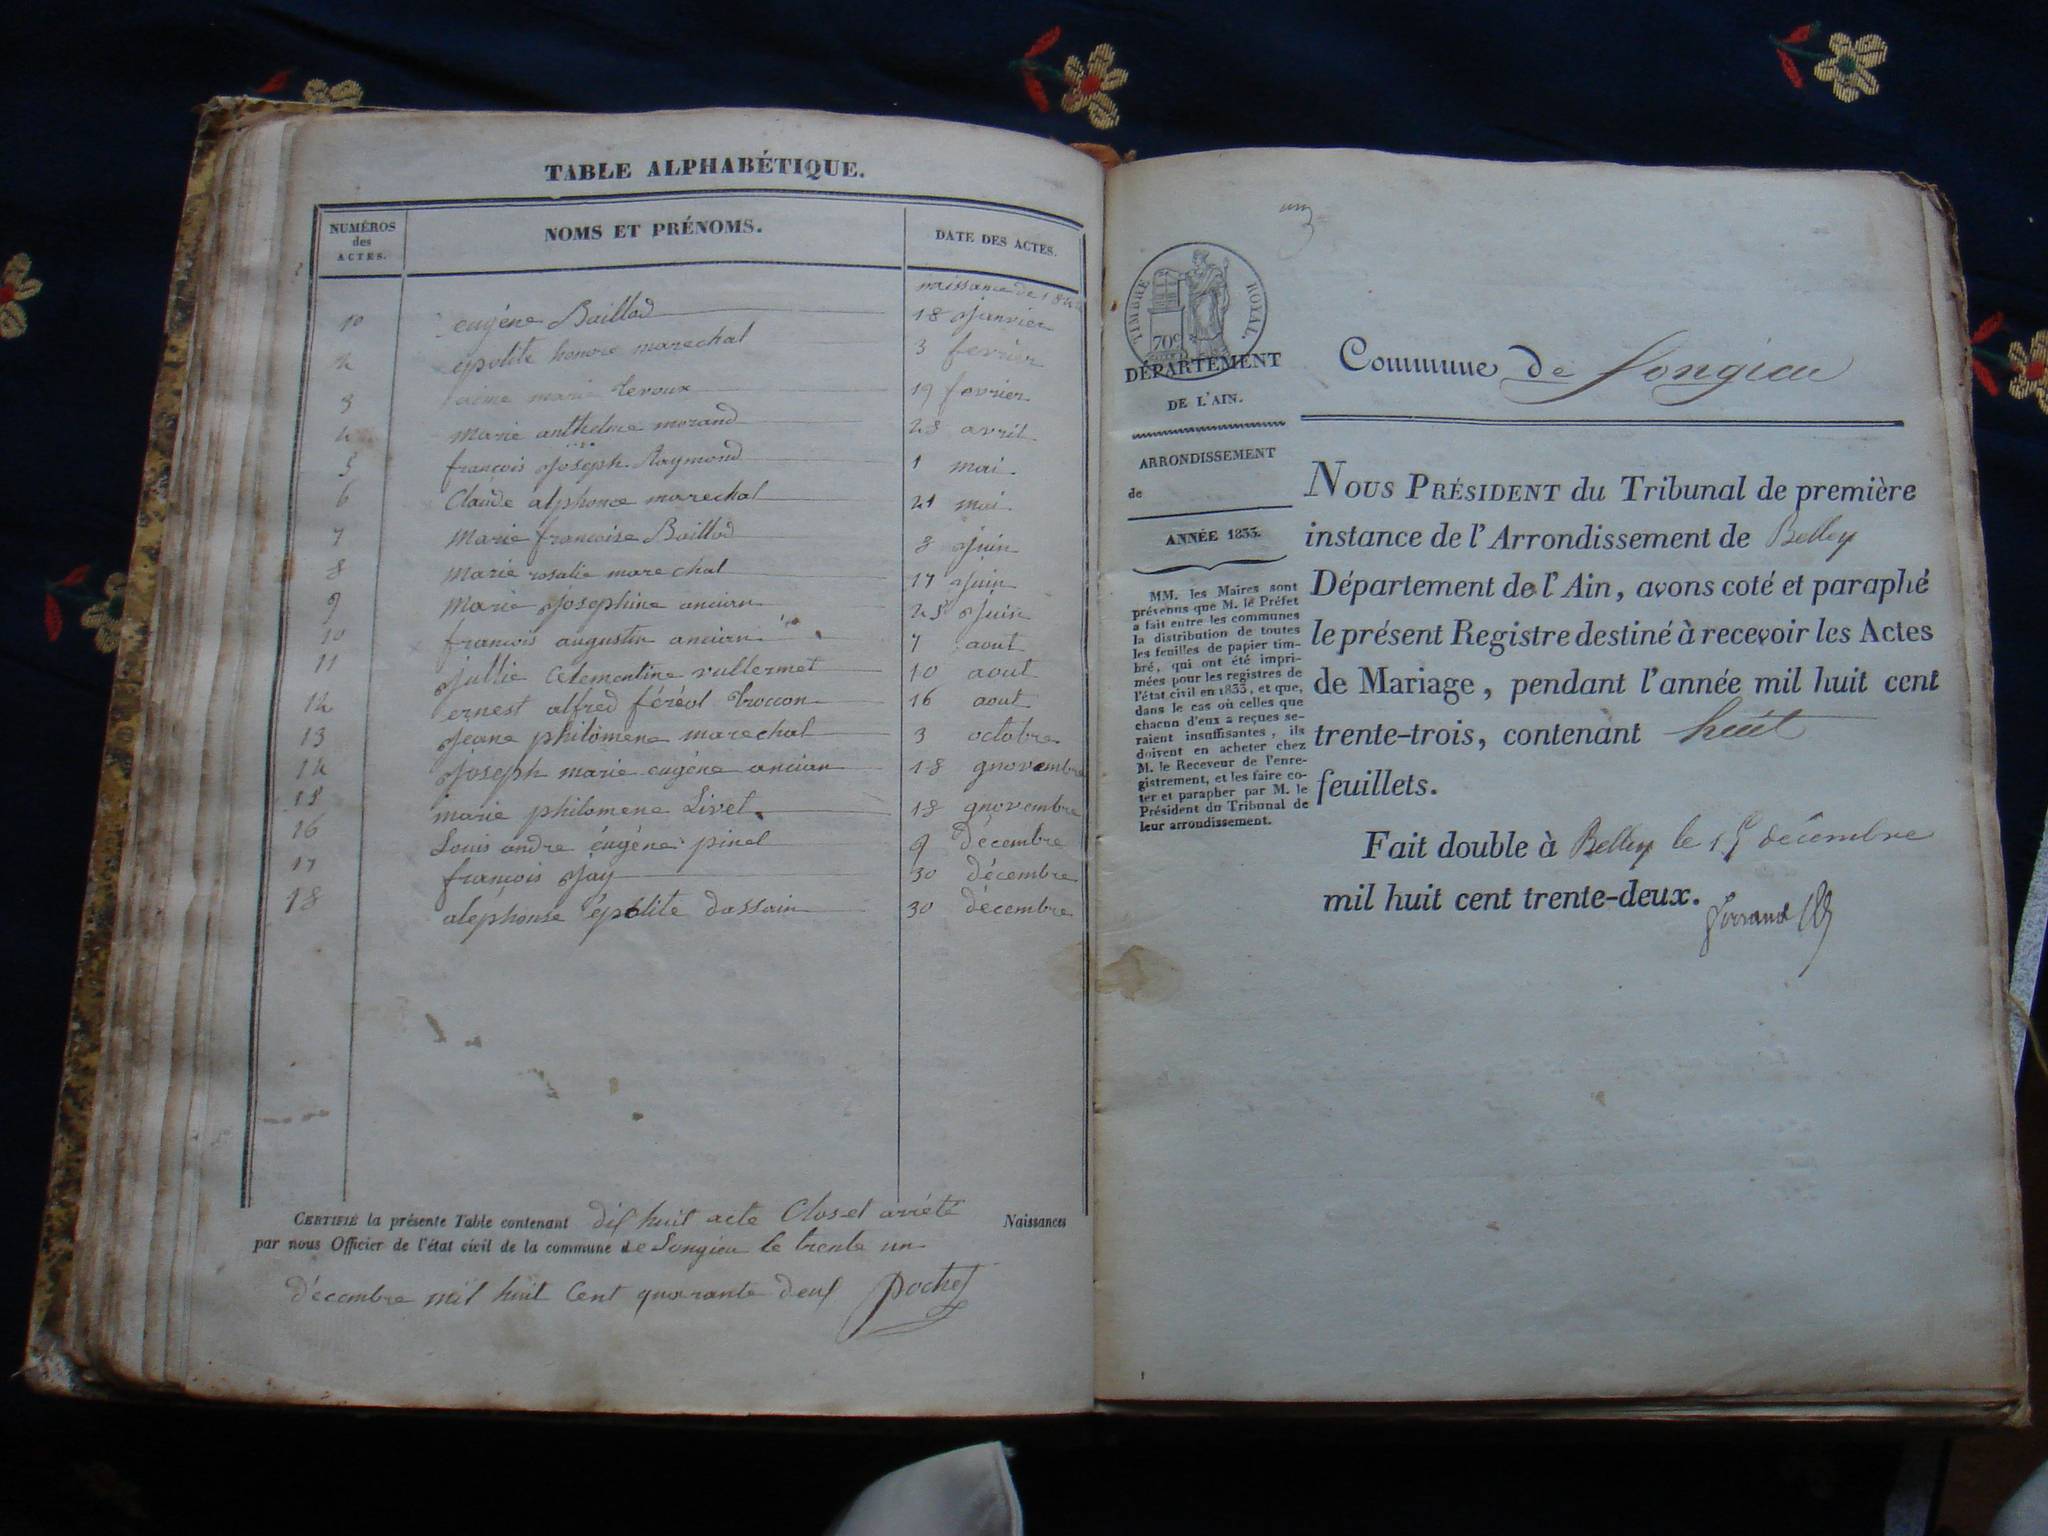 TABLE ALPHABÉTIQUE.
NUMÉROS des ACTES. NOMS ET PRÉNOMS. DATE DES ACTES.
naissance de 1842
eugéne Baillod 18 Janvier
2 epolite honore marechal 3 fevrier
3 aimé marie 19 fevrier
4 marie anthelme morand 28 avril
5 françois Joseph Raymond 1 mai
6 Claude alphonce marechal 21 mai
7 marie francoise Baillod 8 Juin
8 marie rosalie marechal 17 Juin
9 marie Josephine ancian 25 Juin
10 francois augustin ancian 7 aout
11 Jullie Clementine vullermet 10 aout
12 ernest alfred féréol Troccon 16 aout
13 Jeane philomène marechal 3 octobre
14 Joseph marie eugéne ancian 18 gnovembre
15 marie philomene Livet 18 gnovembre
16 Louis andre éugéne pinel 9 décembre
17 françois Jay 30 décembre
18 alephonse épolite dassain 30 décembre
CERTIFIÉ la présente Table contenant dix huit acte Clos et arrété Naissances
par nous Officier de l'état civil de la commune de Songieu le trente un
décembre mil huit Cent quarante deux pochet
TIMBRE ROYAL.
70c
DÉPARTEMENT
DE L'AIN.
ARRONDISSEMENT
de
ANNÉE 1833.
MM. les Maires sont
prévenus que M. le Préfet
a fait entre les communes
la distribution de toutes
les feuilles de papier tim-
bré, qui ont été impri-
mées pour les registres de
l'état civil en 1833, et que,
dans le cas où celles que
chacun d'eux a reçues se-
raient insuffisantes, ils
doivent en acheter chez
M. le Receveur de l'enre-
gistrement, et les faire co-
ter et parapher par M. le
Président du Tribunal de
leur arrondissement.
Commune de Songieu
NOUS PRÉSIDENT du Tribunal de première
instance de l'Arrondissement de Belley
Département de l'Ain, avons coté et paraphé
le présent Registre destiné à recevoir les Actes
de Mariage, pendant l'année mil huit cent
trente-trois, contenant huit
feuillets.
Fait double à Belley le 15 décembre
mil huit cent trente-deux.